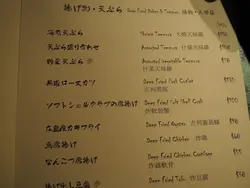 揚げ物・天ぷら Deep Fried Dishes & Tempura 揚物・天婦羅
海老天ぷら Shrimp Tempura 大蝦天婦羅
天ぷら盛り合わせ Assorted Tempura 什錦天婦羅
野菜天ぷら Assorted Vegetable Tempura 什菜天婦羅
黒豚ロースカツ Deep Fried Pork Cutlet 吉列黑豚
ソフトシェルクラブの唐揚げ Deep Fried Soft Shell Crab 炸軟殼蟹
広島産カキフライ Deep Fried Oyster 吉列廣島蠔
鳥唐揚げ Deep Fried Chicken 炸雞
なんこつ唐揚げ Deep Fried Chicken Cartilage 炸雞軟骨
揚げ出し豆腐 Deep Fried Tofu 炸豆腐